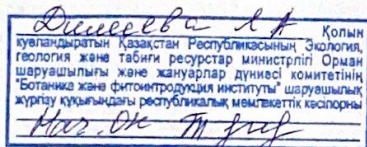 Дилеева Л А Қолын
куәландыратын Қазақстан Республикасының Экология,
геология және табиғи ресурстар министрлігі Орман
шаруашылығы және жануарлар дүниесі комитетінің
"Ботаника және фитоинтродукция институты" шаруашылық
жүргізу құқығындағы республикалық мемлекеттік кәсіпорны
Нач. ОК